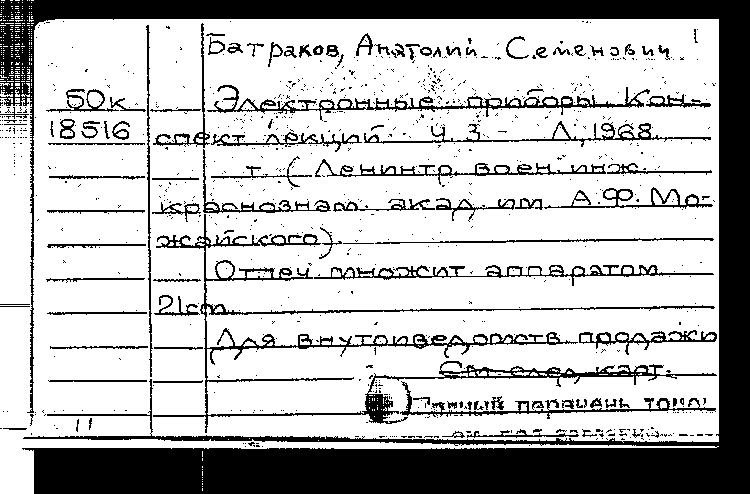 Батраков, Анатолий Семенович 1
50к Электронные приборы. Кон-
18516 спект лекций. Ч. 3 - Л., 1968.
т. (Ленингр. воен. инж.
краснознам. акад. им. А.Ф. Мо-
жайского).
Отпеч. множит. аппаратом
21см.
Для внутриведомств. продажи
См. след. карт.
перечень
11